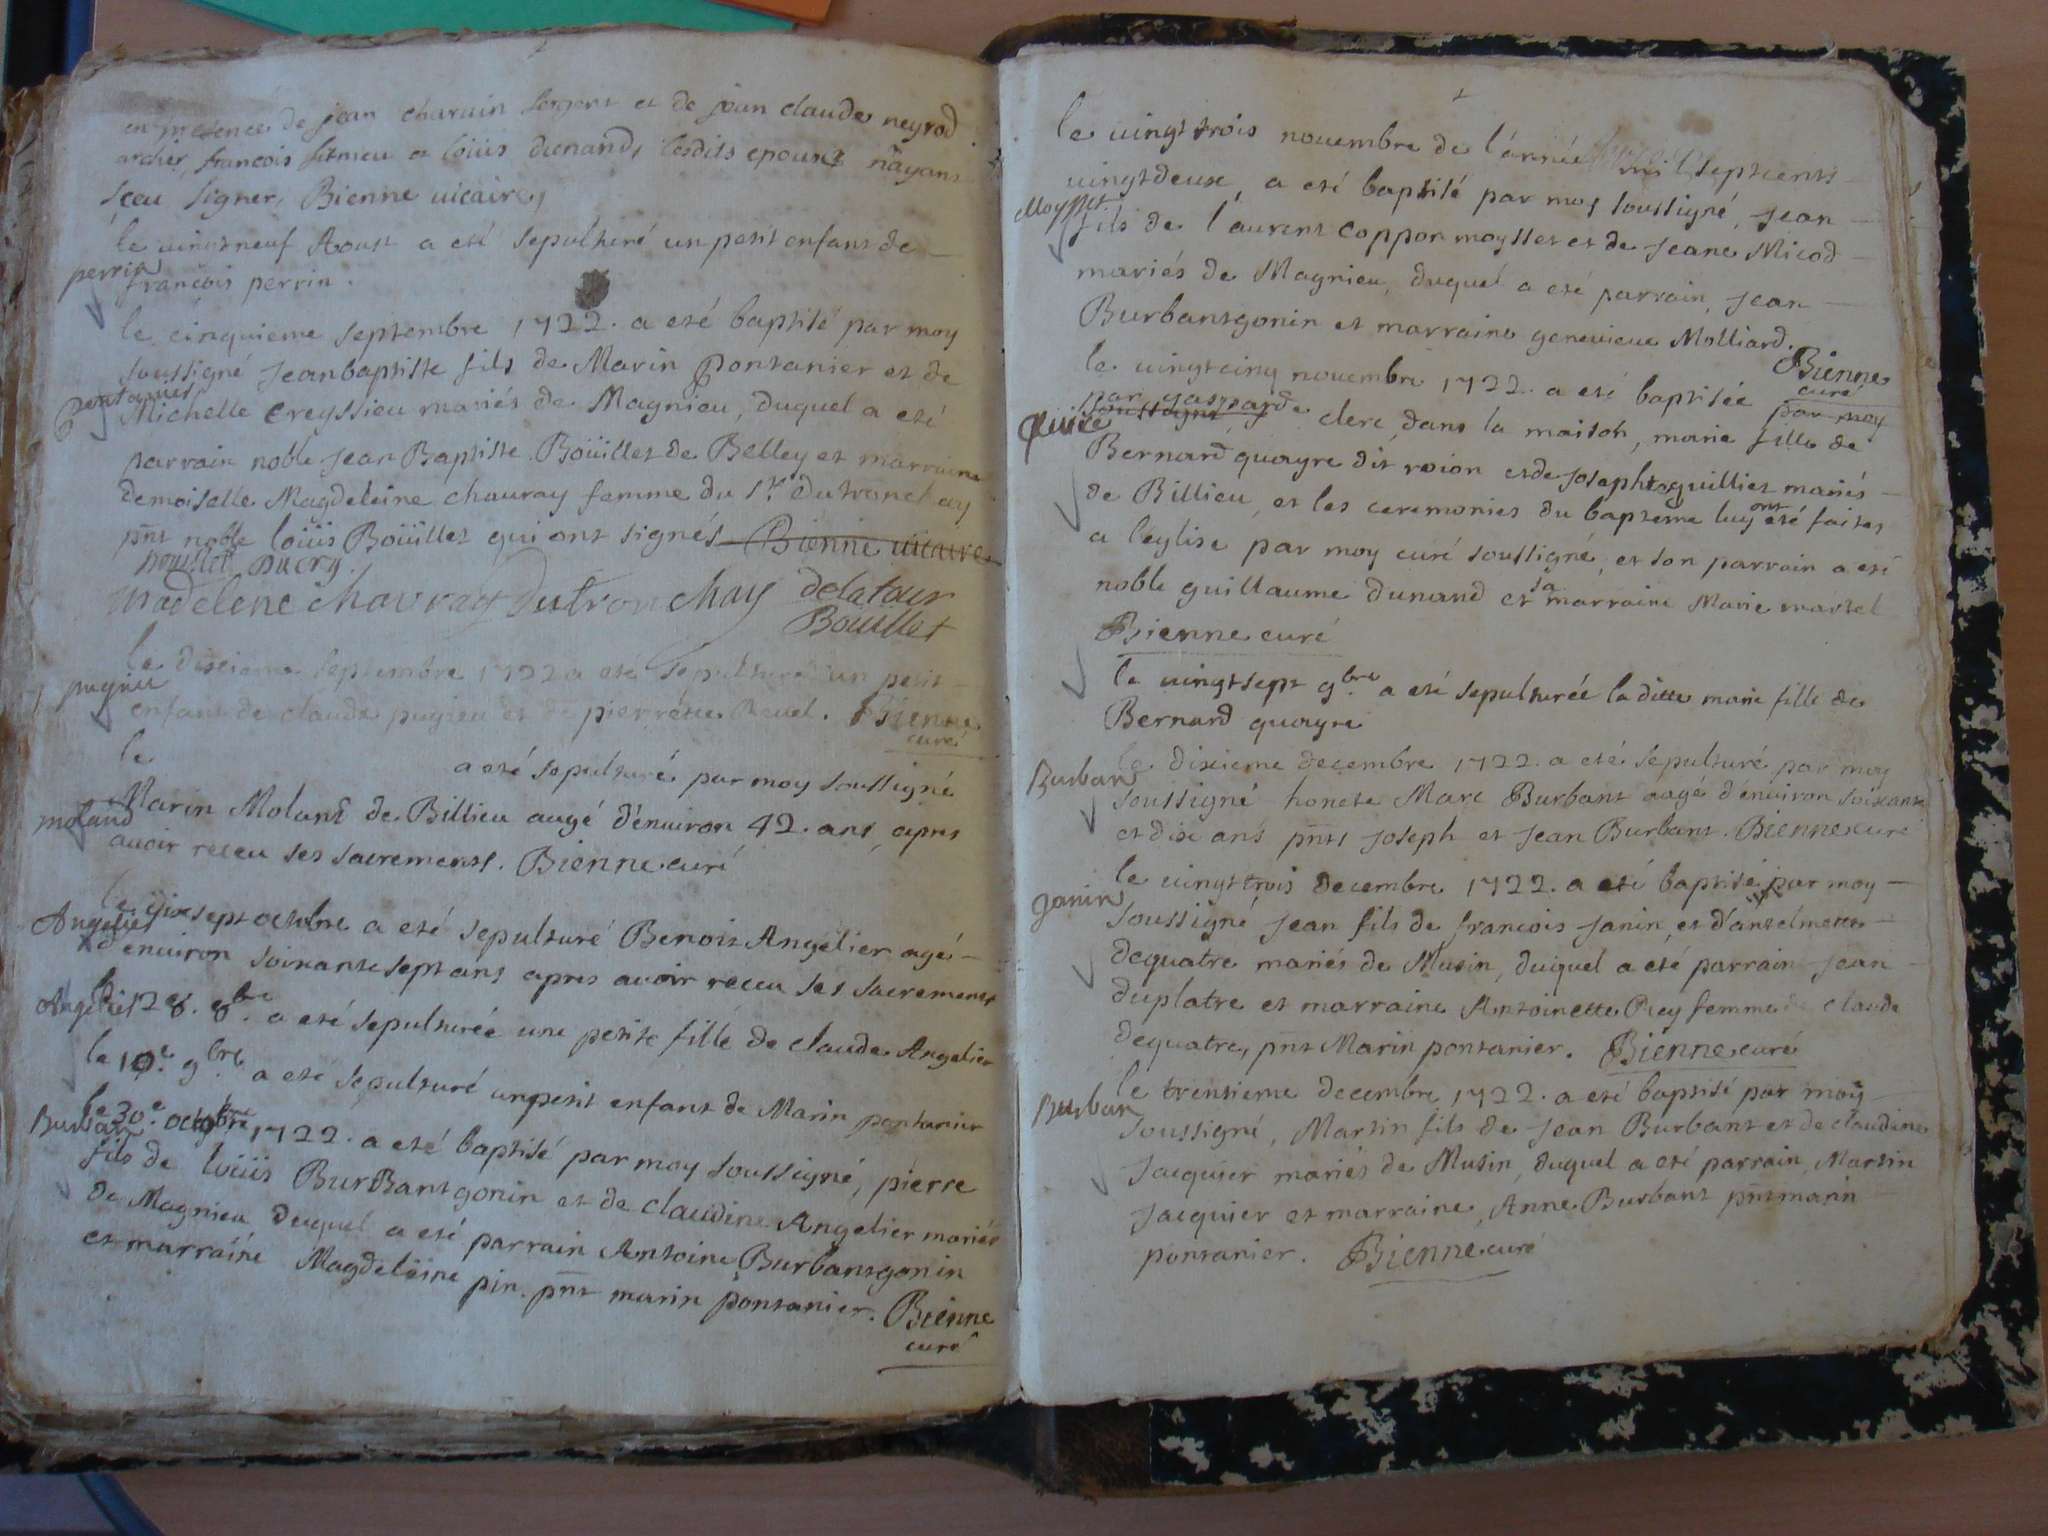 en presence de jean charuin sergent et de jean claude neyrod
archer, francois fitmieu et loüis dunand, lesdits epoux n'ayant
sceu signer, Bienne uicaire
le uingtneuf Aoust a eté sepulturé un petit enfant de
perrin
francois perrin.
le cinquieme septembre 1722. a eté baptisé par moy
soussigné Jeanbaptiste fils de Marin pontanier et de
pontanier
Michelle Creyssieu mariés de Magnieu, duquel a eté
parrain noble Jean Baptiste Boüillet de Belley et marraine
demoiselle Magdeleine chauray femme du sr. dutronchay
pñt noble loüis Boüillet qui ont signés Bienne uicaire
bouillet Ducry.
Madelene Chavray dutronchay delatour
Bouillet
le dixieme septembre 1722 a eté sepulturé un petit
pugieu
enfant de claude pugieu et de pierrette Reuel. Bienne
curé
le a eté sepulturé par moy soussigné
Marin Moland de Billieu aagé d'enuiron 42. ans apres
moland
auoir receu ses sacrements. Bienne curé
le dixsept octobre a eté sepulturé Benoit Angelier agé
Angelier
d'enuiron soixante sept ans apres auoir receu ses sacrements
Angelier
le 28. 8bre. a eté sepulturée une petite fille de claude Angelier
le 10e. 9bre a eté sepulturé un petit enfant de Marin pontanier
le 30e. octobre 1722. a eté baptisé par moy soussigné, pierre
Burban
fils de loüis Burbantgonin et de claudine Angelier mariés
de Magnieu, duquel a eté parrain Antoine Burbantgonin
et marraine Magdeleine pin. pñt marin pontanier. Bienne
curé
le uingttrois nouembre de l'année mil septcents
uingtdeux, a eté baptisé par moy soussigné, Jean
Moysset
fils de laurent coppon moysset et de Jeane Micod
mariés de Magnieu, duquel a eté parrain, Jean
Burbantgonin et marraine geneuieue Molliard.
Bienne
curé
le uingtcinq nouembre 1722. a eté baptisée par moy
soussigné par gasparde clerc, dans la maison, marie fille de
Bernard quayre dit roion et de Josephte guilliet mariés
de Billieu, et les ceremonies du bapteme luy ont eté faites
a leglise par moy curé soussigné, et son parrain a eté
noble guillaume dunand et sa marraine Marie martel
Bienne curé
le uingtsept 9bre. a eté sepulturée la ditte marie fille de
Bernard quayre
Burban
le dixieme decembre 1722. a eté sepulturé par moy
soussigné honete Marc Burbant aagé d'enuiron soixante
et dix ans pñts Joseph et Jean Burbant. Bienne curé
le uingttrois decembre 1722. a eté baptisé par moy
Janin
soussigné Jean fils de francois Janin, et d'antelmette
dequatre mariés de Musin, duquel a eté parrain Jean
duplatre et marraine Antoinette Rey femme de claude
dequatre, pñt Marin pontanier. Bienne curé
le trentieme decembre 1722. a eté baptisé par moy
Burban
soussigné, Martin fils de Jean Burbant et de claudine
Jacquier mariés de Musin, duquel a eté parrain, Martin
Jacquier et marraine, Anne Burbant pñt marin
pontanier. Bienne curé